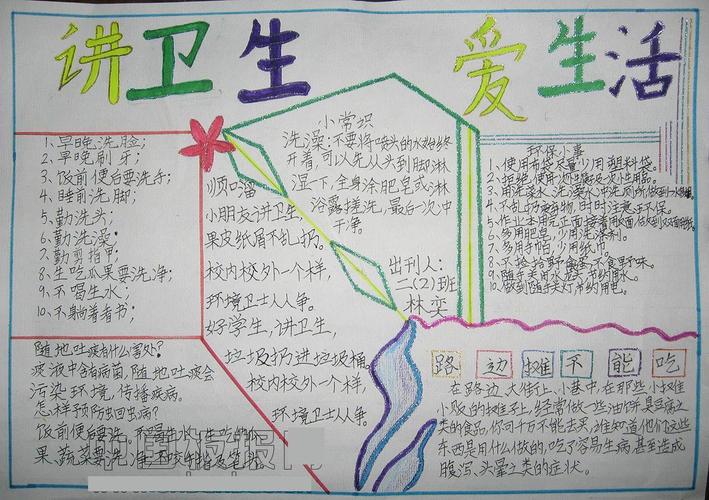 讲卫生 爱生活
1、早晚洗脸;
2、早晚刷牙;
3、饭前便后要洗手;
4、睡前洗脚;
5、勤洗头;
6、勤洗澡;
7、勤剪指甲;
8、生吃瓜果要洗净;
9、不喝生水;
10、不躺着看书;
随地吐痰有什么害处?
痰液中含有病菌,随地吐痰会
污染环境,传播疾病。
怎样预防蛔虫病?
饭前便后要洗
果、蔬菜要洗净
顺口溜
小朋友讲卫生
果皮纸屑不乱扔。
校内校外一个样,
环境卫士人人争。
好学生,讲卫生,
垃圾扔进垃圾桶
校内校外一个样,
环境卫士人人争。
小常识
洗澡:不要将喷头的水始终
开着,可以先从头到脚淋
湿一下,全身涂肥皂或沐
浴露搓洗,最后一次冲
干净。
出刊人:
二(2)班
林奕
环保小事
1、使用布袋尽量少用塑料袋。
3、用洗澡水、洗澡水冲厕所做到一水
4、不乱扔废弃物,时时注意环保。
6、多用肥皂,少用洗涤剂。
7、多用手帕,少用纸巾
10、做到随手关灯节约用电。
路边摊不能吃
在路边、大街上、小巷中,在那些小摊
小贩的摊子上,经常做一些油饼、臭豆腐之
类的食品,你可千万不能去买,谁知道他们这些
东西是用什么做的,吃了容易生病,甚至造成
腹泻、头晕之类的症状。